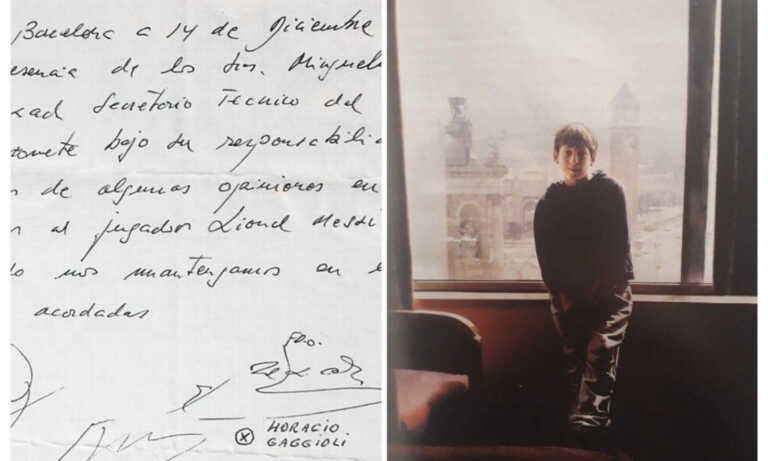 Barcelona a 14 de Diciembre
esencia de los Sres. Minguella
Secretorio Tecnico del
bajo su responsabili
de algunas opiniones en
al jugador Lionel Messi
nos mantengamos en
acordadas
FDO.
HORACIO
GAGGIOLI